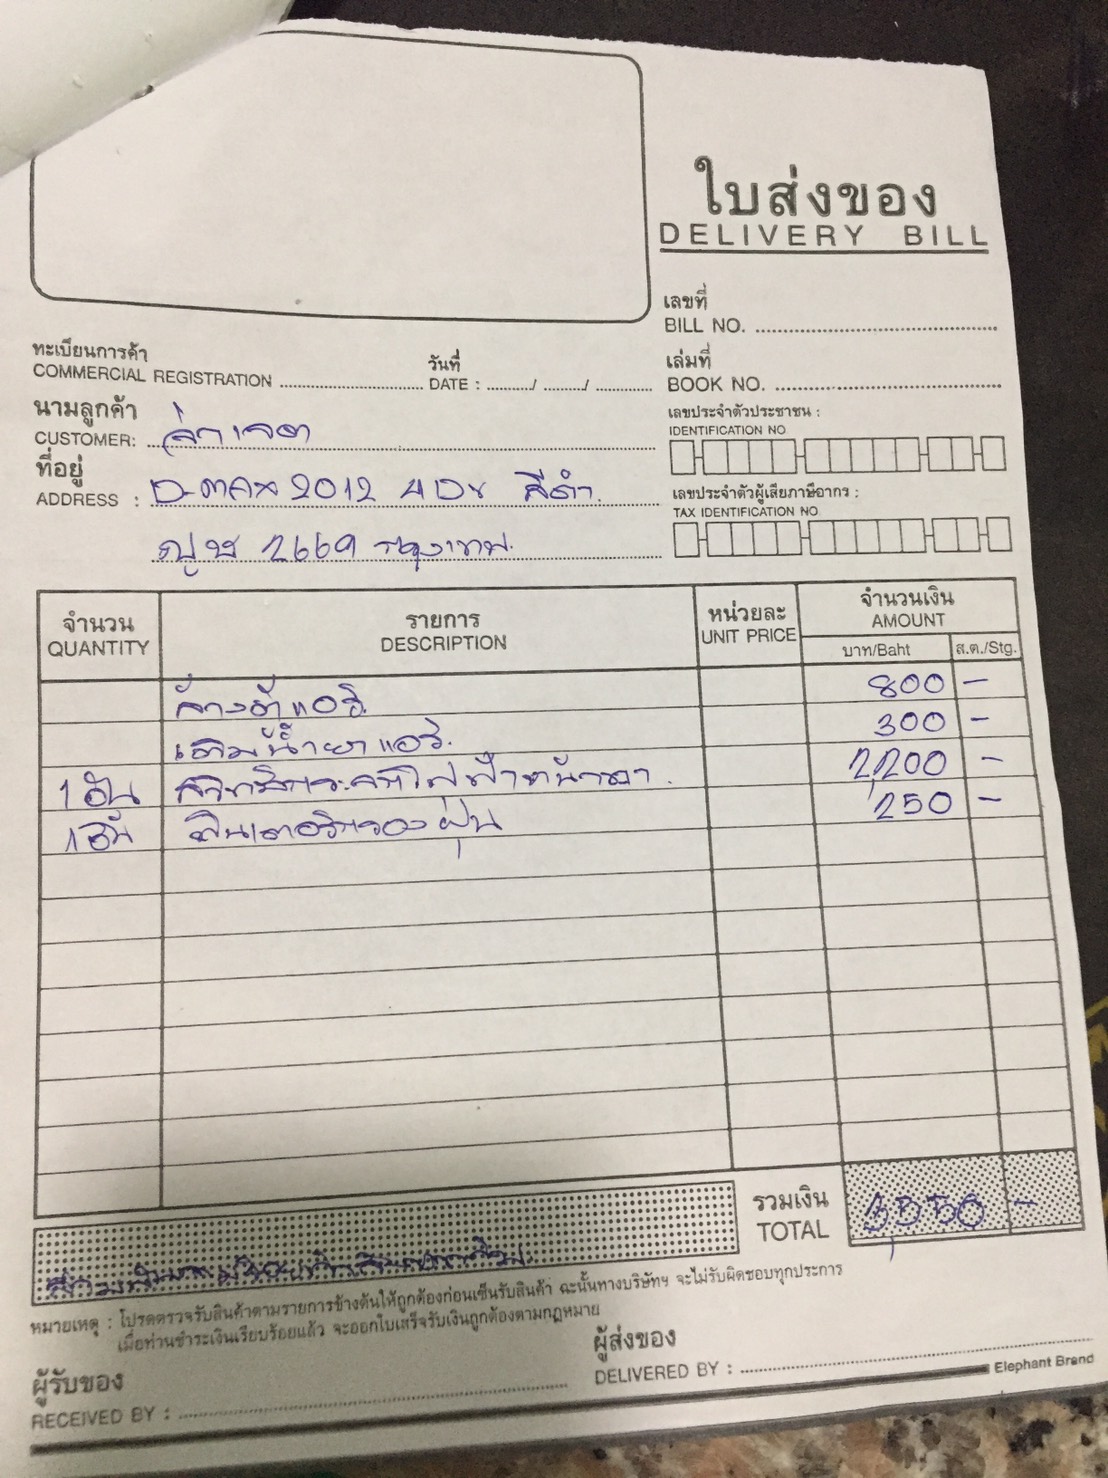 ใบส่งของ
DELIVERY BILL
เลขที่
BILL NO.
ทะเบียนการค้า
COMMERCIAL REGISTRATION
วันที่
DATE : / /
เล่มที่
BOOK NO.
นามลูกค้า
CUSTOMER:
เลขประจำตัวประชาชน :
IDENTIFICATION NO
ที่อยู่
ADDRESS : D-max 2012 4 Dr สีดำ
2669 กรุงเทพ
เลขประจำตัวผู้เสียภาษีอากร :
TAX IDENTIFICATION NO.
จำนวน รายการ หน่วยละ จำนวนเงิน
QUANTITY DESCRIPTION UNIT PRICE AMOUNT
บาท/Baht ส.ต./Stg.
ล้างตู้แอร์ 800 -
เติมน้ำยาแอร์. 300 -
1 อัน 2,200 -
1 อัน ฟิลเตอร์กรองฝุ่น 250 -
รวมเงิน
TOTAL 3,550 -
หมายเหตุ : โปรดตรวจรับสินค้าตามรายการข้างต้นให้ถูกต้องก่อนเซ็นรับสินค้า ฉะนั้นทางบริษัทฯ จะไม่รับผิดชอบทุกประการ
เมื่อท่านชำระเงินเรียบร้อยแล้ว จะออกใบเสร็จรับเงินถูกต้องตามกฎหมาย
ผู้รับของ
RECEIVED BY :
ผู้ส่งของ
DELIVERED BY :
Elephant Brand